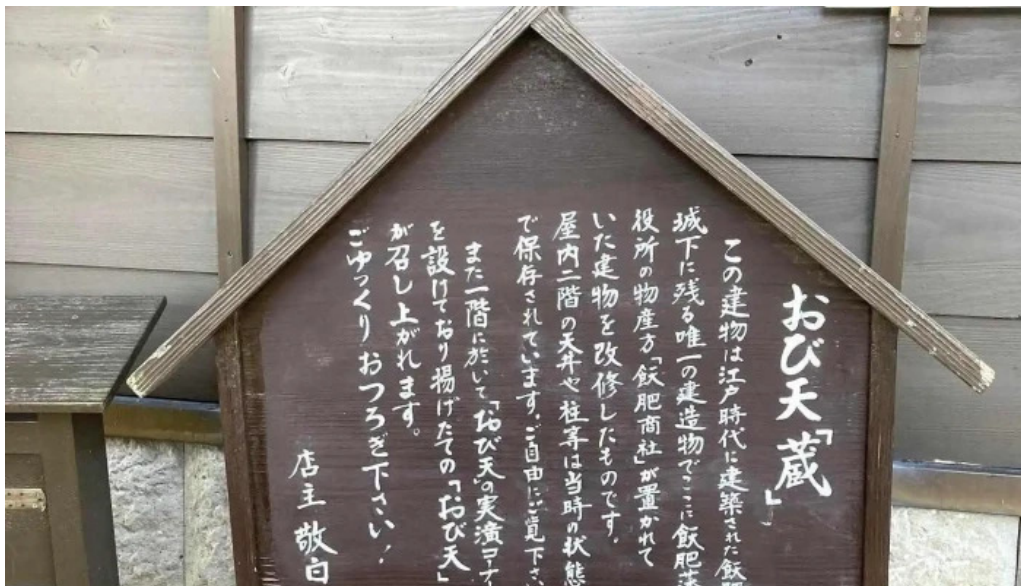 おび天「蔵」
この建物は江戸時代に建築された飫肥
城下に残る唯一の建造物でここに飫肥藩
役所の物産方「飫肥商社」が置かれて
いた建物を改修したものです。
屋内二階の天井や柱等は当時の状態
で保存されています。ご自由にご覧下さい
また一階に於いて「おび天」の実演コーナー
を設けており揚げたての「おび天」
が召し上がれます。
ごゆっくりおつろぎ下さい！
店主 敬白